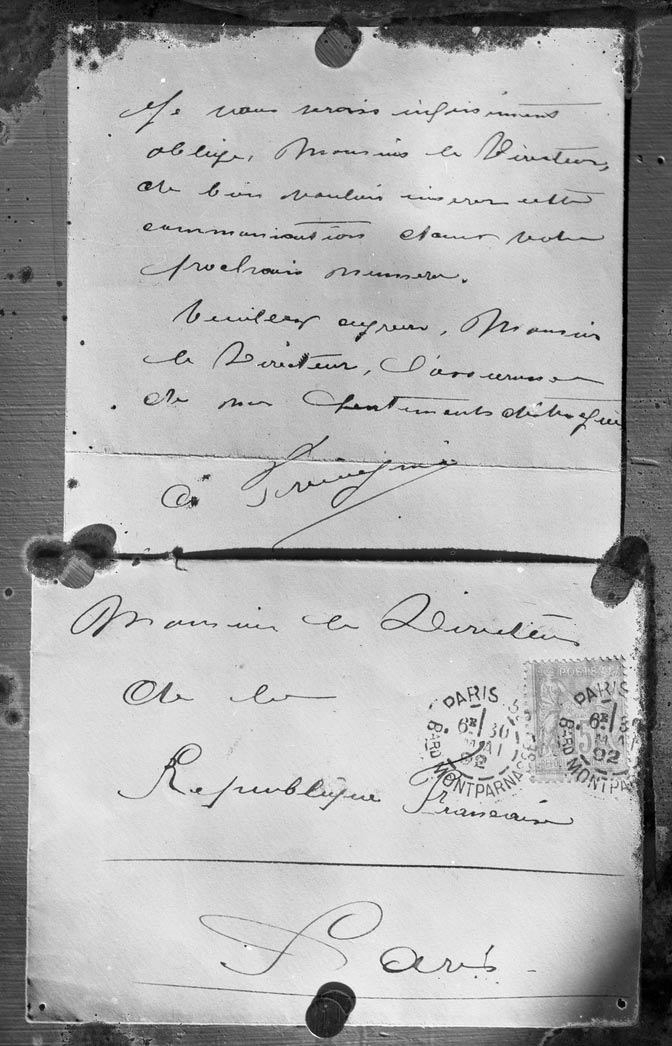 Je vous serais infiniment
obligé, Monsieur le Directeur,
de bien vouloir inserer cette
communication dans votre
prochain numero.
Veuillez agreer, Monsieur
le Directeur, l'assurance
de mes sentiments distingués
Monsieur le Directeur
de la
Republique Française
Paris
PARIS
6E 30
MAI
92
BARD MONTPARNASSE
POSTE
PARIS
6E
92
BARD MONTPA